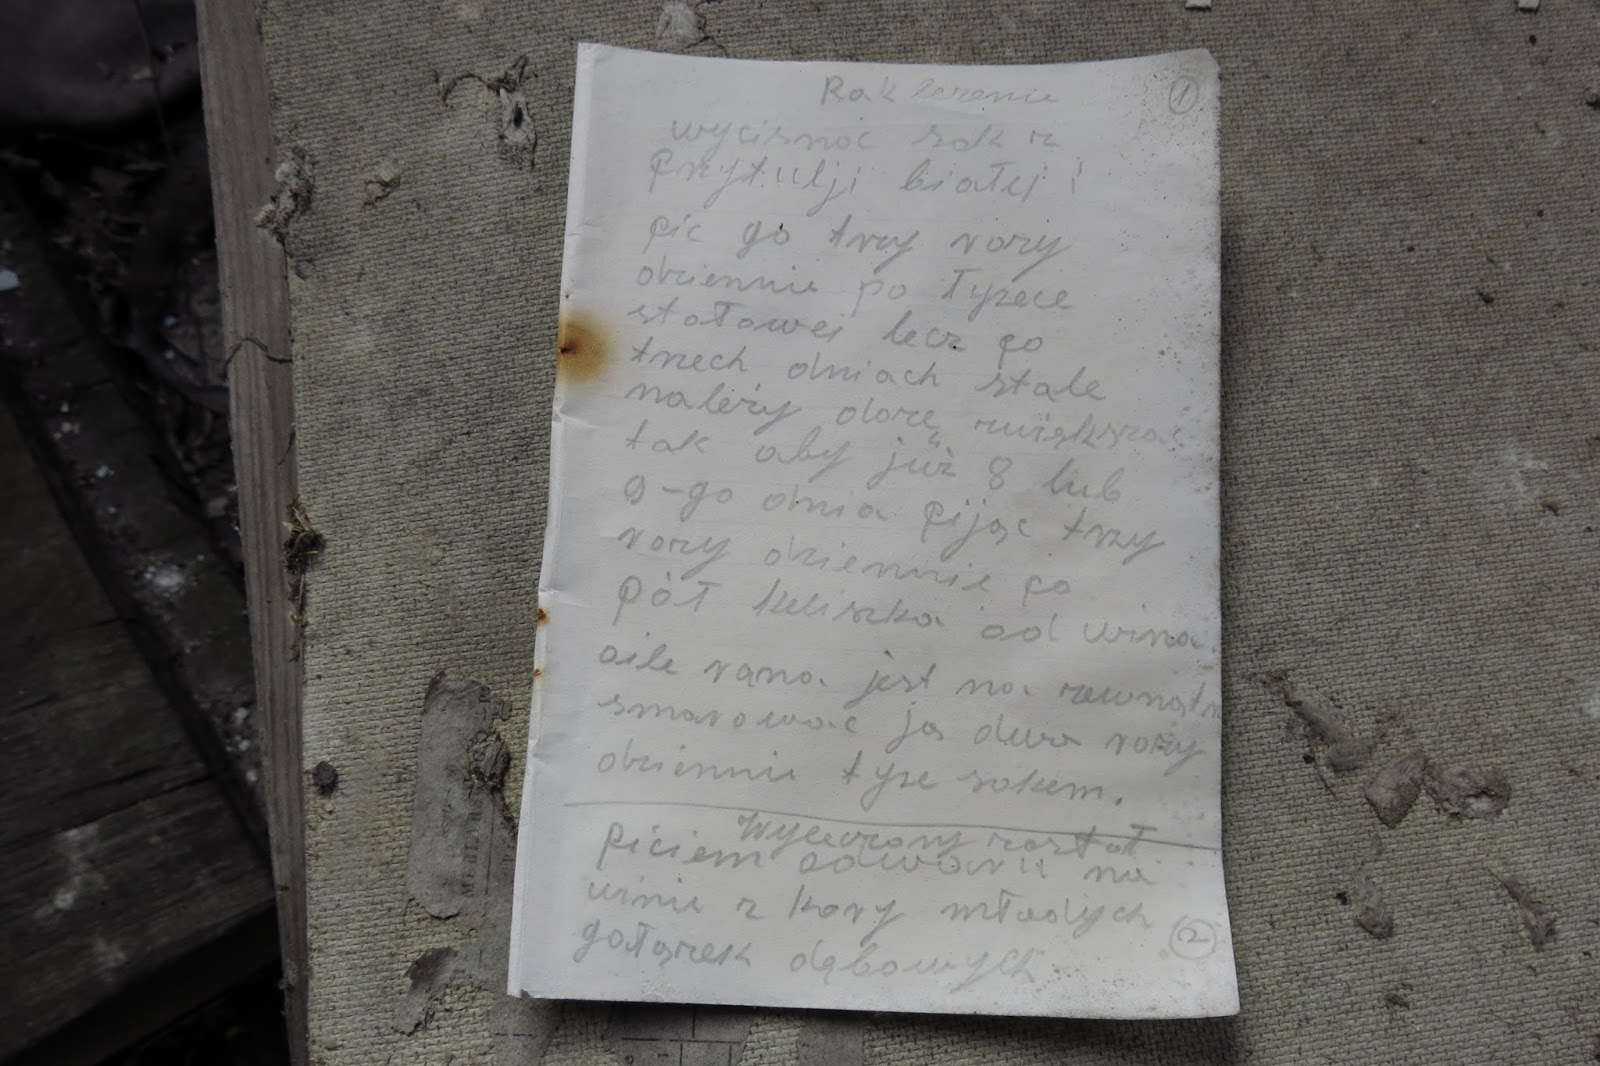 Rak leczenie ①
wycisnoc sok z
przytulji białej i
pic go trzy razy
dziennie po łyzece
stołowej lecz po
trzech dniach stale
należy doze zwiększac
tak aby już 8 lub
9-go dnia pijąc trzy
razy dziennie po
pół kieliszka od wina.
oile rana jest na zewnątrz
smarowac ją dwa razy
dziennie tyze sokem.
Wyleczony został
piciem odwaru na
winie z kory młodych
gałązek dąbowych ②